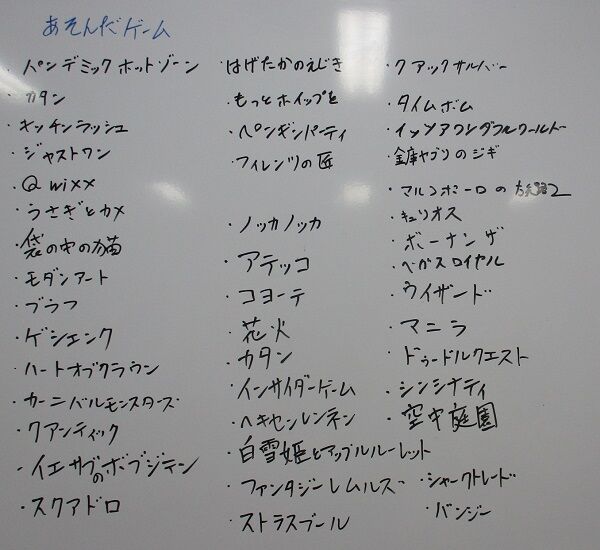 あそんだゲーム
・パンデミックホットゾーン
・カタン
・キッチンラッシュ
・ジャストワン
・Qwixx
・うさぎとカメ
・袋の中の猫
・モダンアート
・ブラフ
・ゲシェンク
・ハートオブクラウン
・カーニバルモンスターズ
・クアンティック
・イエサブのボブジテン
・スクアドロ
・はげたかのえじき
・もっとホイップを
・ペンギンパーティ
・フィレンツの匠
・ノッカノッカ
・アテッコ
・コヨーテ
・花火
・カタン
・インサイダーゲーム
・ヘキセンレンネン
・白雪姫とアップルルーレット
・ファンタジーレムルズ
・ストラスブール
・クアックサルバー
・タイムボム
・イッツアワンダフルワールド
・マルコポーロの旅路2
・キュリオス
・ボーナンザ
・ベガスロイヤル
・ウイザード
・マニラ
・ドゥードルクエスト
・シンシナティ
・空中庭園
・シャークトレード
・バンジー